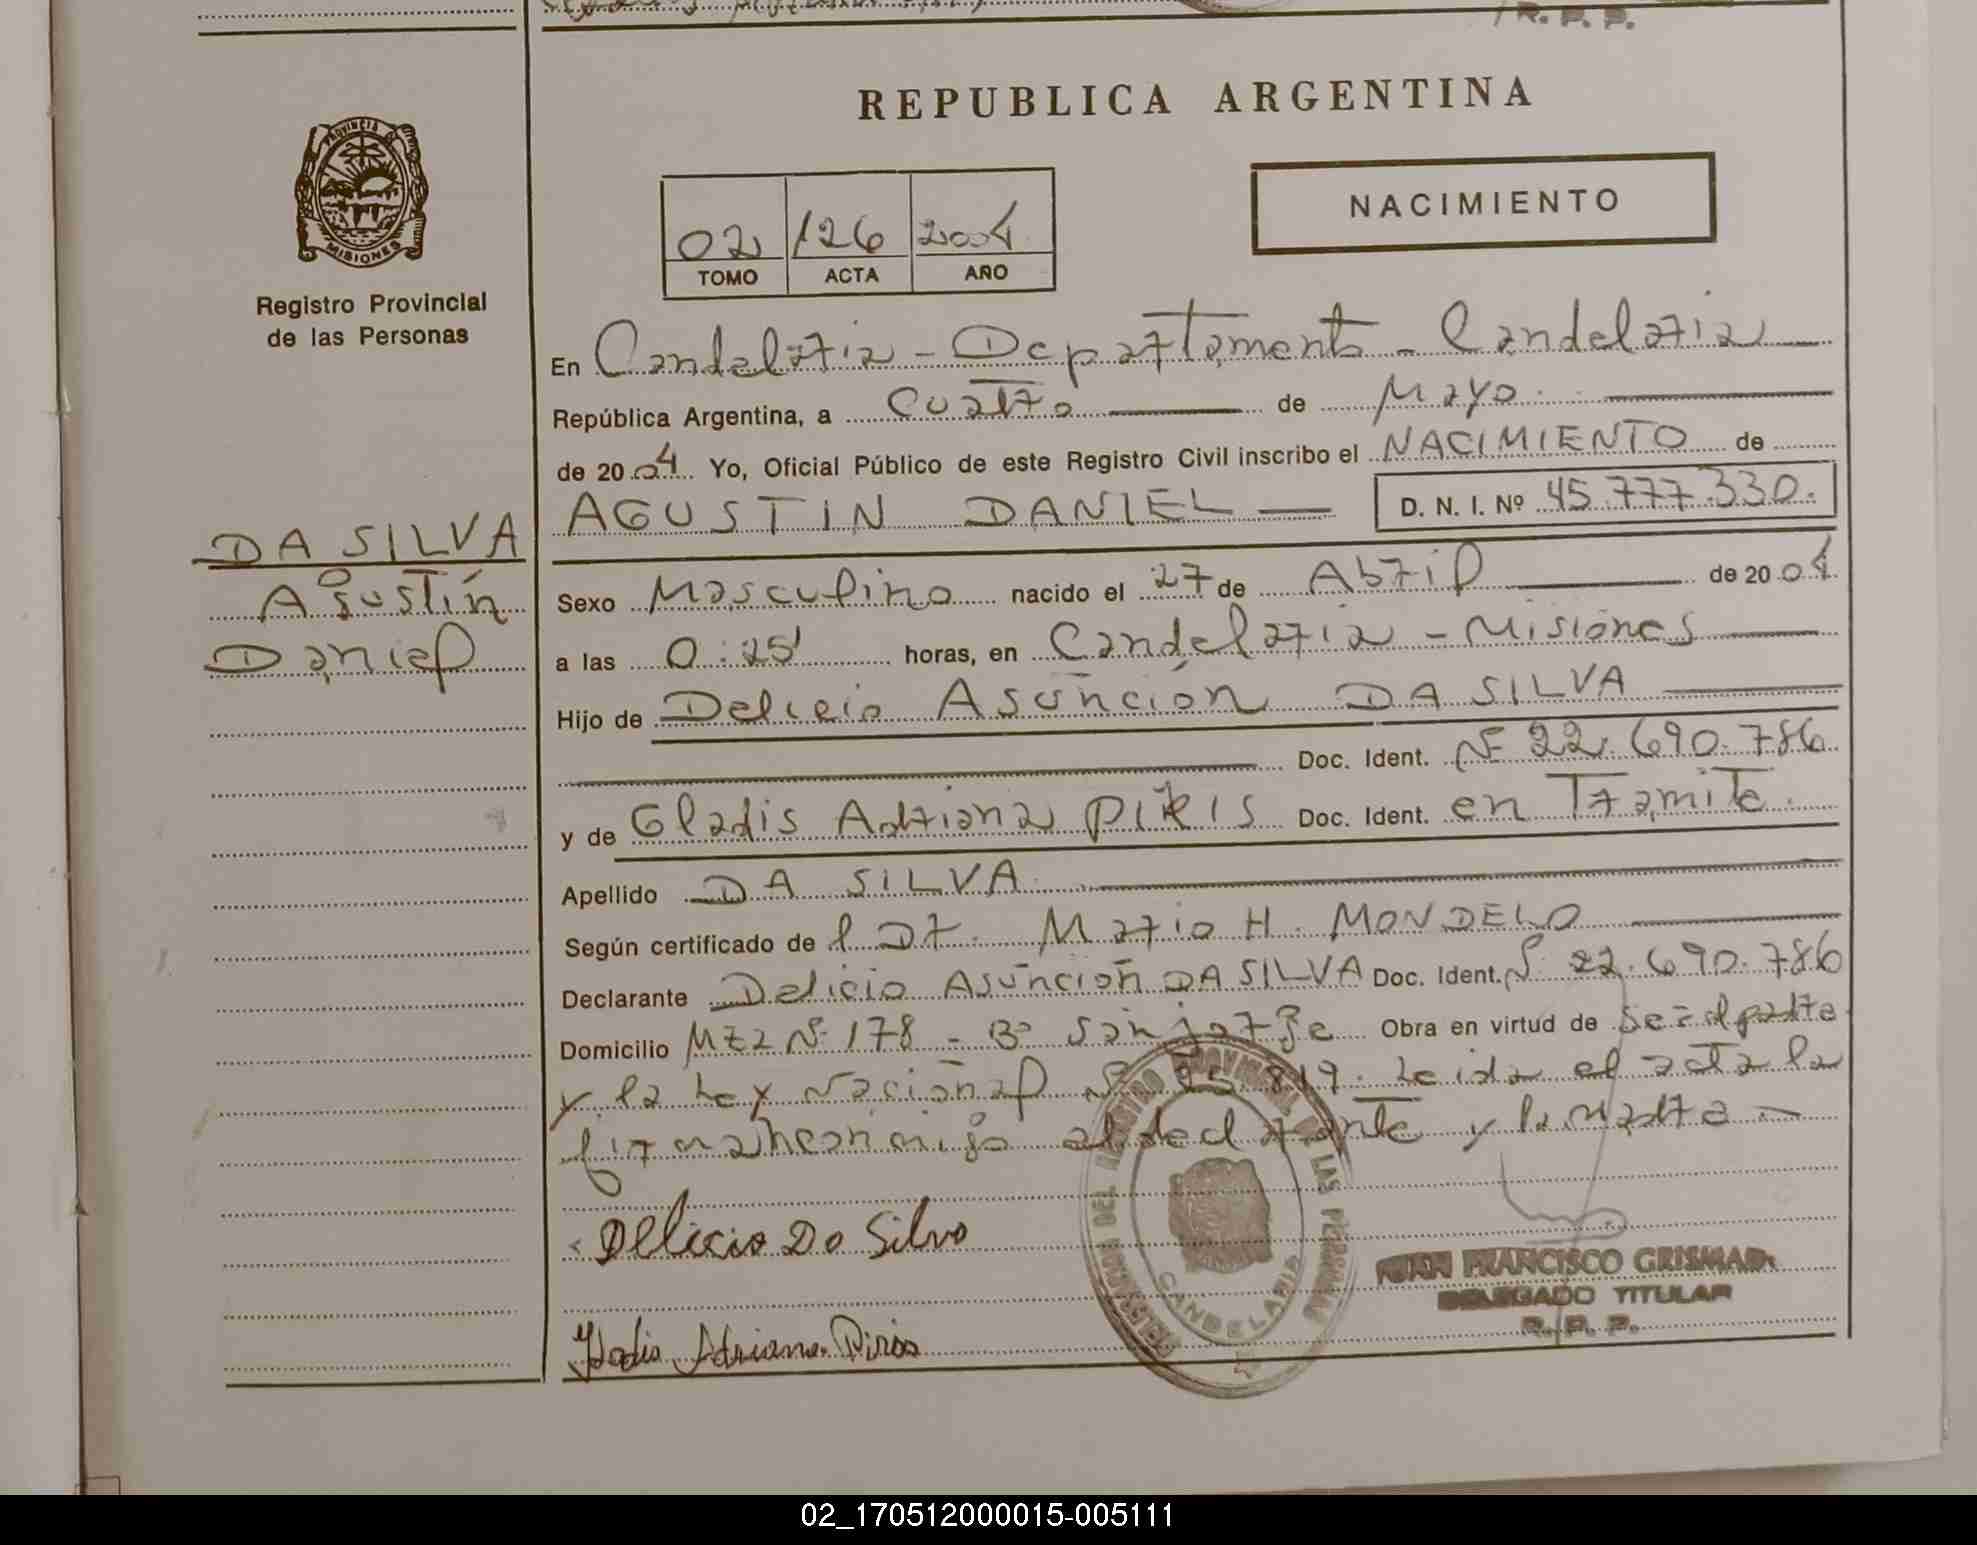 R. P. P.
REPUBLICA ARGENTINA
PROVINCIA DE
MISIONES
Registro Provincial
de las Personas
NACIMIENTO
02 126 2004
TOMO ACTA AÑO
En Candelaria - Departamento - Candelaria
República Argentina, a Cuatro de Mayo
de 2004 Yo, Oficial Público de este Registro Civil inscribo el NACIMIENTO de
AGUSTIN DANIEL D. N. I. Nº 45.777.330.
DA SILVA
Agustín
Daniel
Sexo Masculino nacido el 27 de Abril de 2004
a las 0:25' horas, en Candelaria - Misiones
Hijo de Delicio Asunción DA SILVA
Doc. Ident. Nº 22.690.786
y de Gladis Adriana PIRIS Doc. Ident. en Tramite.
Apellido DA SILVA
Según certificado de l Dr. Mario H. MONDELO
Declarante Delicio Asunción DA SILVA Doc. Ident. Nº 22.690.786
Domicilio Mz2 Nº 178 - Bº San Jorge Obra en virtud de Ser el padre
y la Ley Nacional Nº 25.819. Leida el acta la
firman conmigo el declarante y la madre
Delicio Da Silva
Gladis Adriana Piris
DELEGACION DEL REGISTRO PROVINCIAL DE LAS PERSONAS
CANDELARIA
JUAN FRANCISCO GRISMAN
DELEGADO TITULAR
R. P. P.
02_170512000015-005111